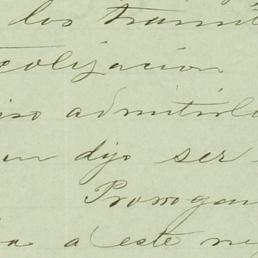 los tramit
colizacion
iso admitirl
un dijo ser
Prorrogan
a a este ne